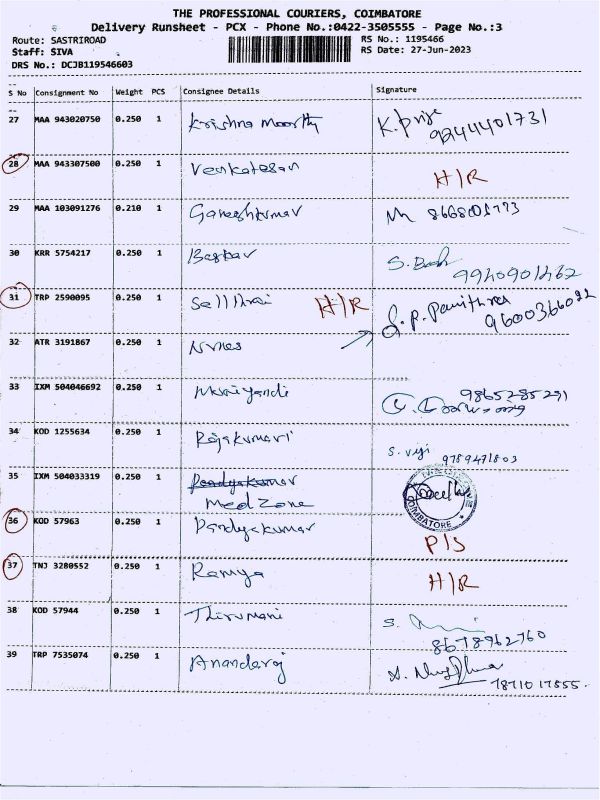 THE PROFESSIONAL COURIERS, COIMBATORE
Delivery Runsheet - PCX - Phone No.:0422-3505555 - Page No.:3
Route: SASTRIROAD RS No.: 1195466
Staff: SIVA RS Date: 27-Jun-2023
DRS No.: DCJB119546603
S No Consignment No Weight PCS Consignee Details Signature
27 MAA 943020750 0.250 1 Krishna Moorthy K. priya
9244401731
28 MAA 943307500 0.250 1 Venkatesan H/R
29 MAA 103091276 0.210 1 Ganeshkumar
30 KRR 5754217 0.250 1 Baskar S.
31 TRP 2590095 0.250 1 H/R
S. P. Pavithra
9600366092
32 ATR 3191867 0.250 1
33 IXM 504046692 0.250 1 9865285291
34 KOD 1255634 0.250 1 Rajakumari S. viji 9789471803
35 IXM 504033319 0.250 1
Medzone COIMBATORE
36 KOD 57963 0.250 1 Pandyakumar P/S
37 TNJ 3280552 0.250 1 Ramya H/R
38 KOD 57944 0.250 1 Thirumani S.
8678962760
39 TRP 7535074 0.250 1 Anandaraj
7871017855.